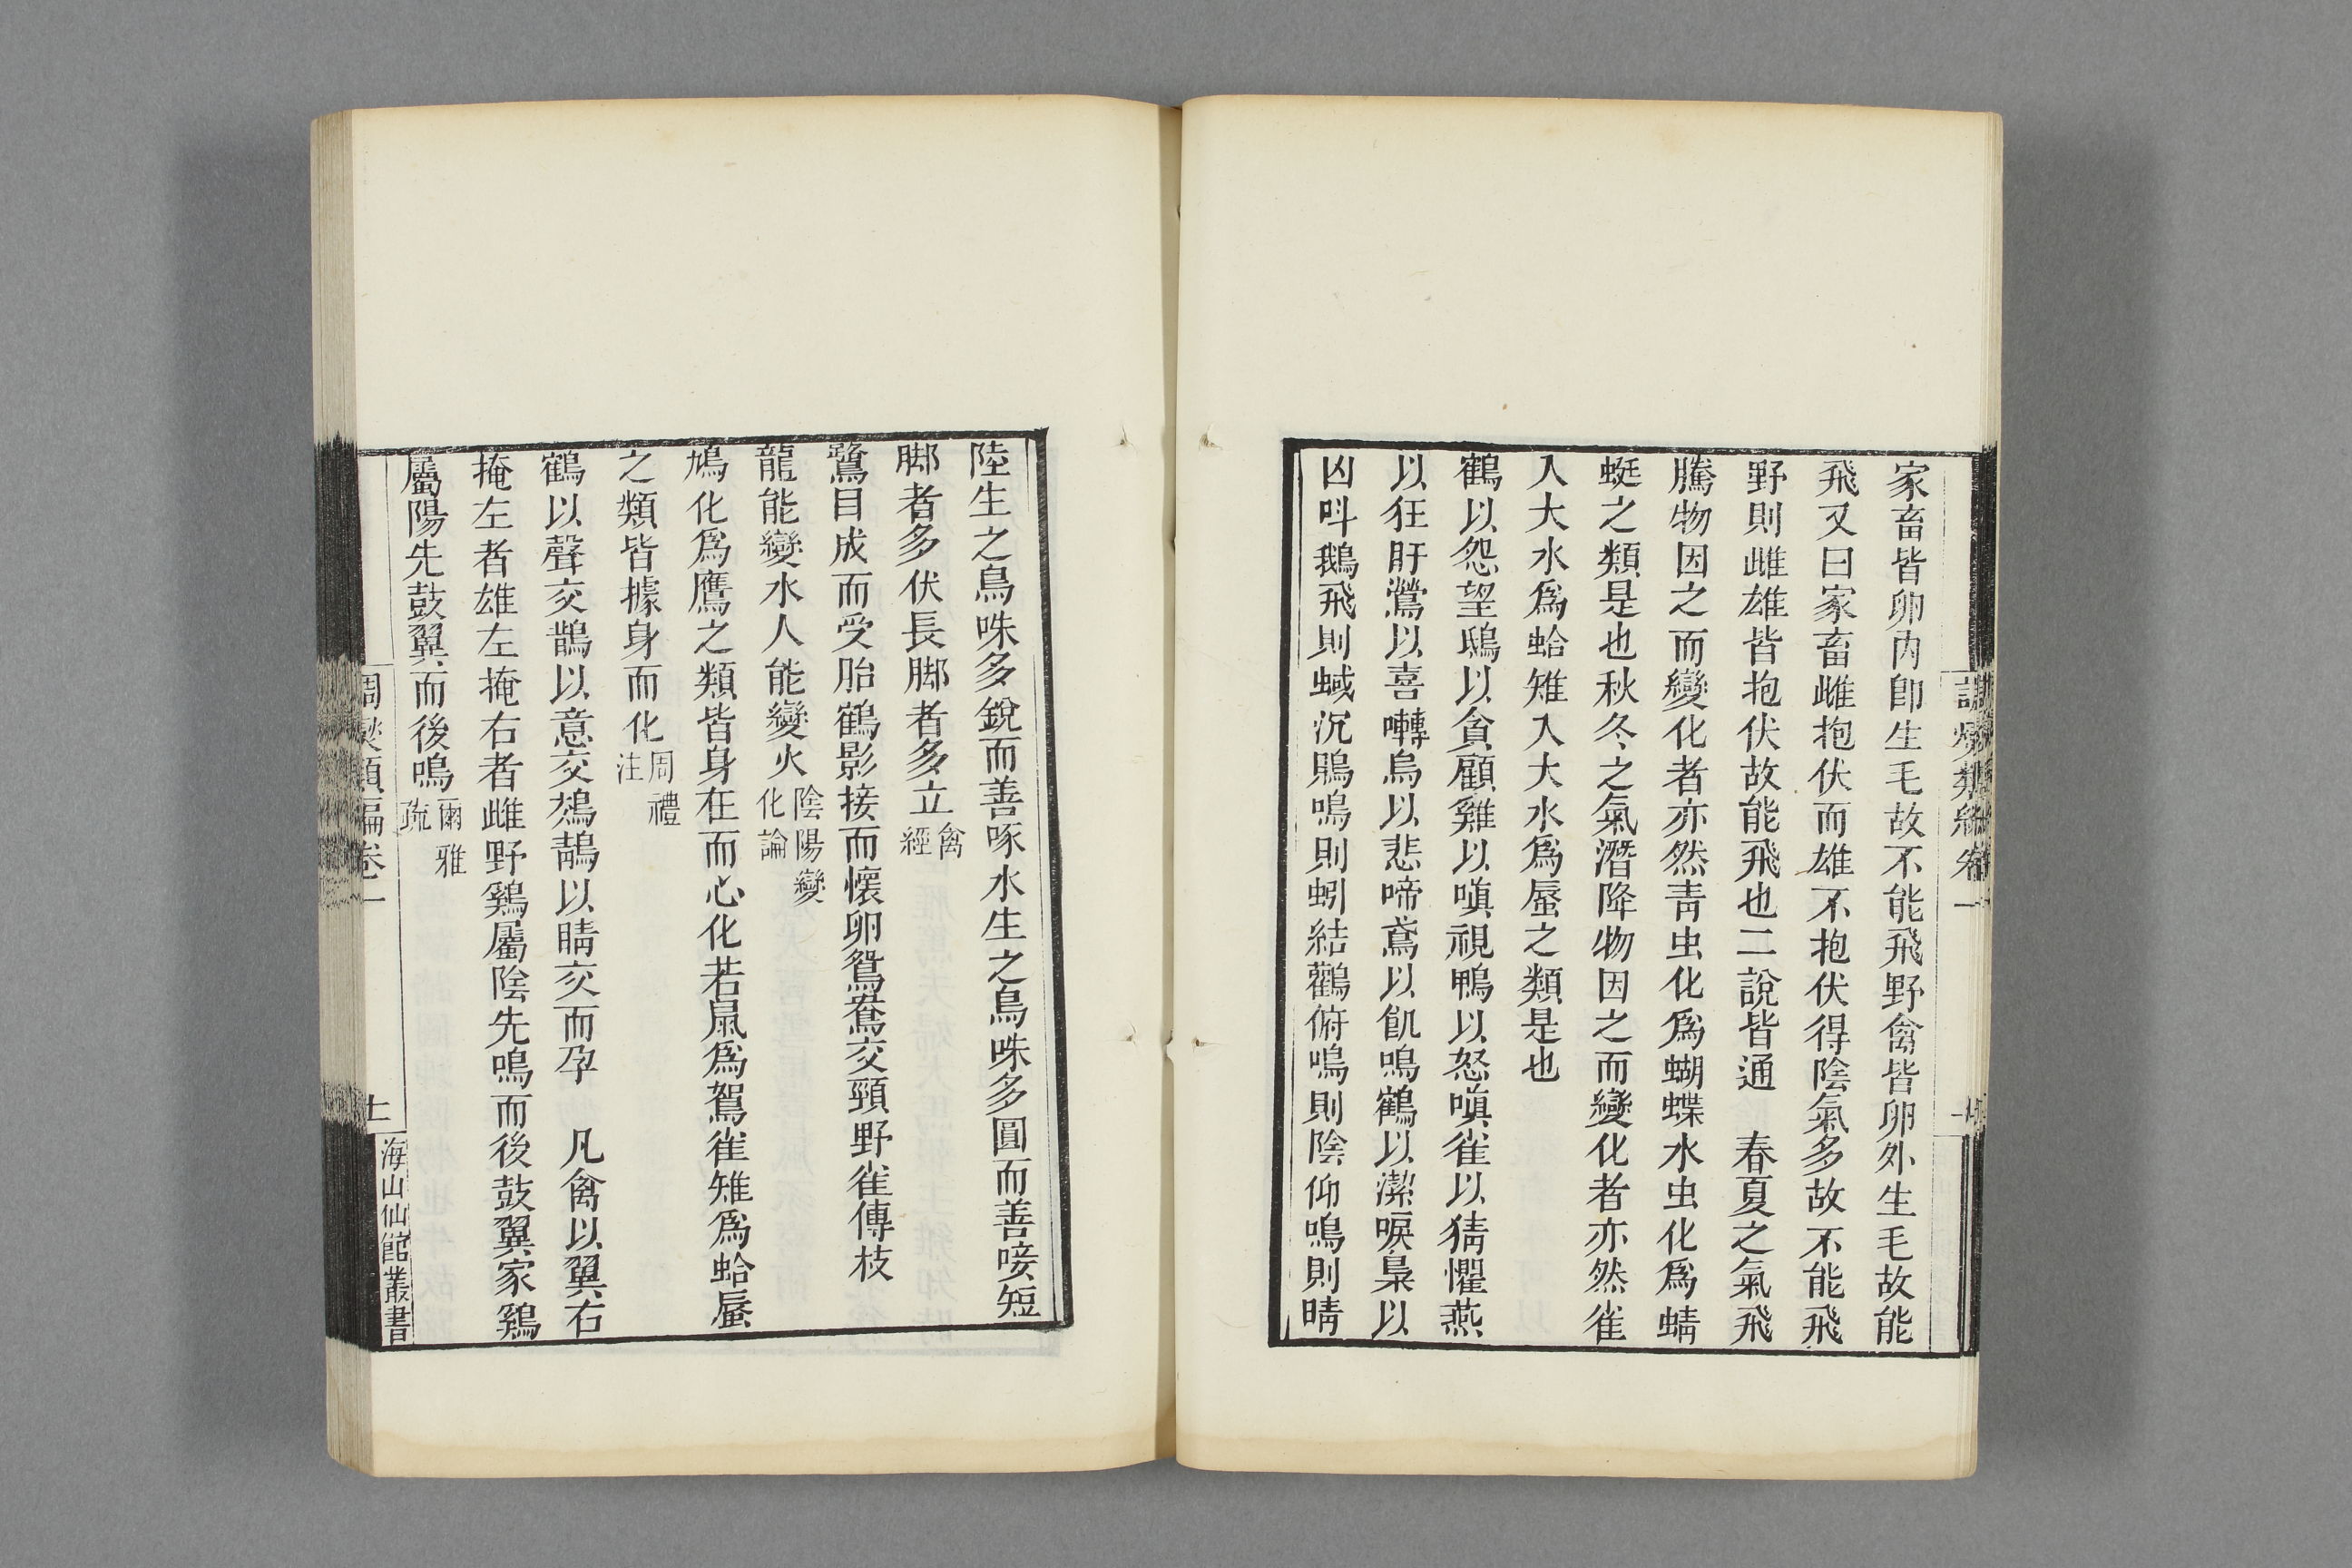 家畜皆卵內卽生毛故不能飛野禽皆卵外生毛故能
飛又曰家畜雌抱伏而雄不抱伏得陰氣多故不能飛
野則雌雄皆抱伏故能飛也二說皆通　春夏之氣飛
騰物因之而變化者亦然靑虫化爲蝴蝶水虫化爲蜻
蜓之類是也秋冬之氣潛降物因之而變化者亦然雀
入大水爲蛤雉入大水爲蜃之類是也
鶴以怨望鴟以貪顧雞以嗔視鴨以怒嗔雀以猜懼燕
以狂䀏鶯以喜囀烏以悲啼鳶以飢鳴鶴以潔唳梟以
凶呌鵝飛則蜮沉鵙鳴則蚓結鸛俯鳴則陰仰鳴則晴
陸生之鳥咮多銳而善啄水生之鳥咮多圓而善唼短
脚者多伏長脚者多立禽經
鷺目成而受胎鶴影接而懷卵鴛鴦交頸野雀傳枝
龍能變水人能變火陰陽變化論
鳩化爲鷹之類皆身在而心化若鼠爲鴽雀雉爲蛤蜃
之類皆據身而化周禮注
鶴以聲交鵲以意交鵁鶄以睛交而孕　凡禽以翼右
掩左者雄左掩右者雌野鷄屬陰先鳴而後鼓翼家鷄
屬陽先鼓翼而後鳴爾雅疏
卷一
海山仙館叢書